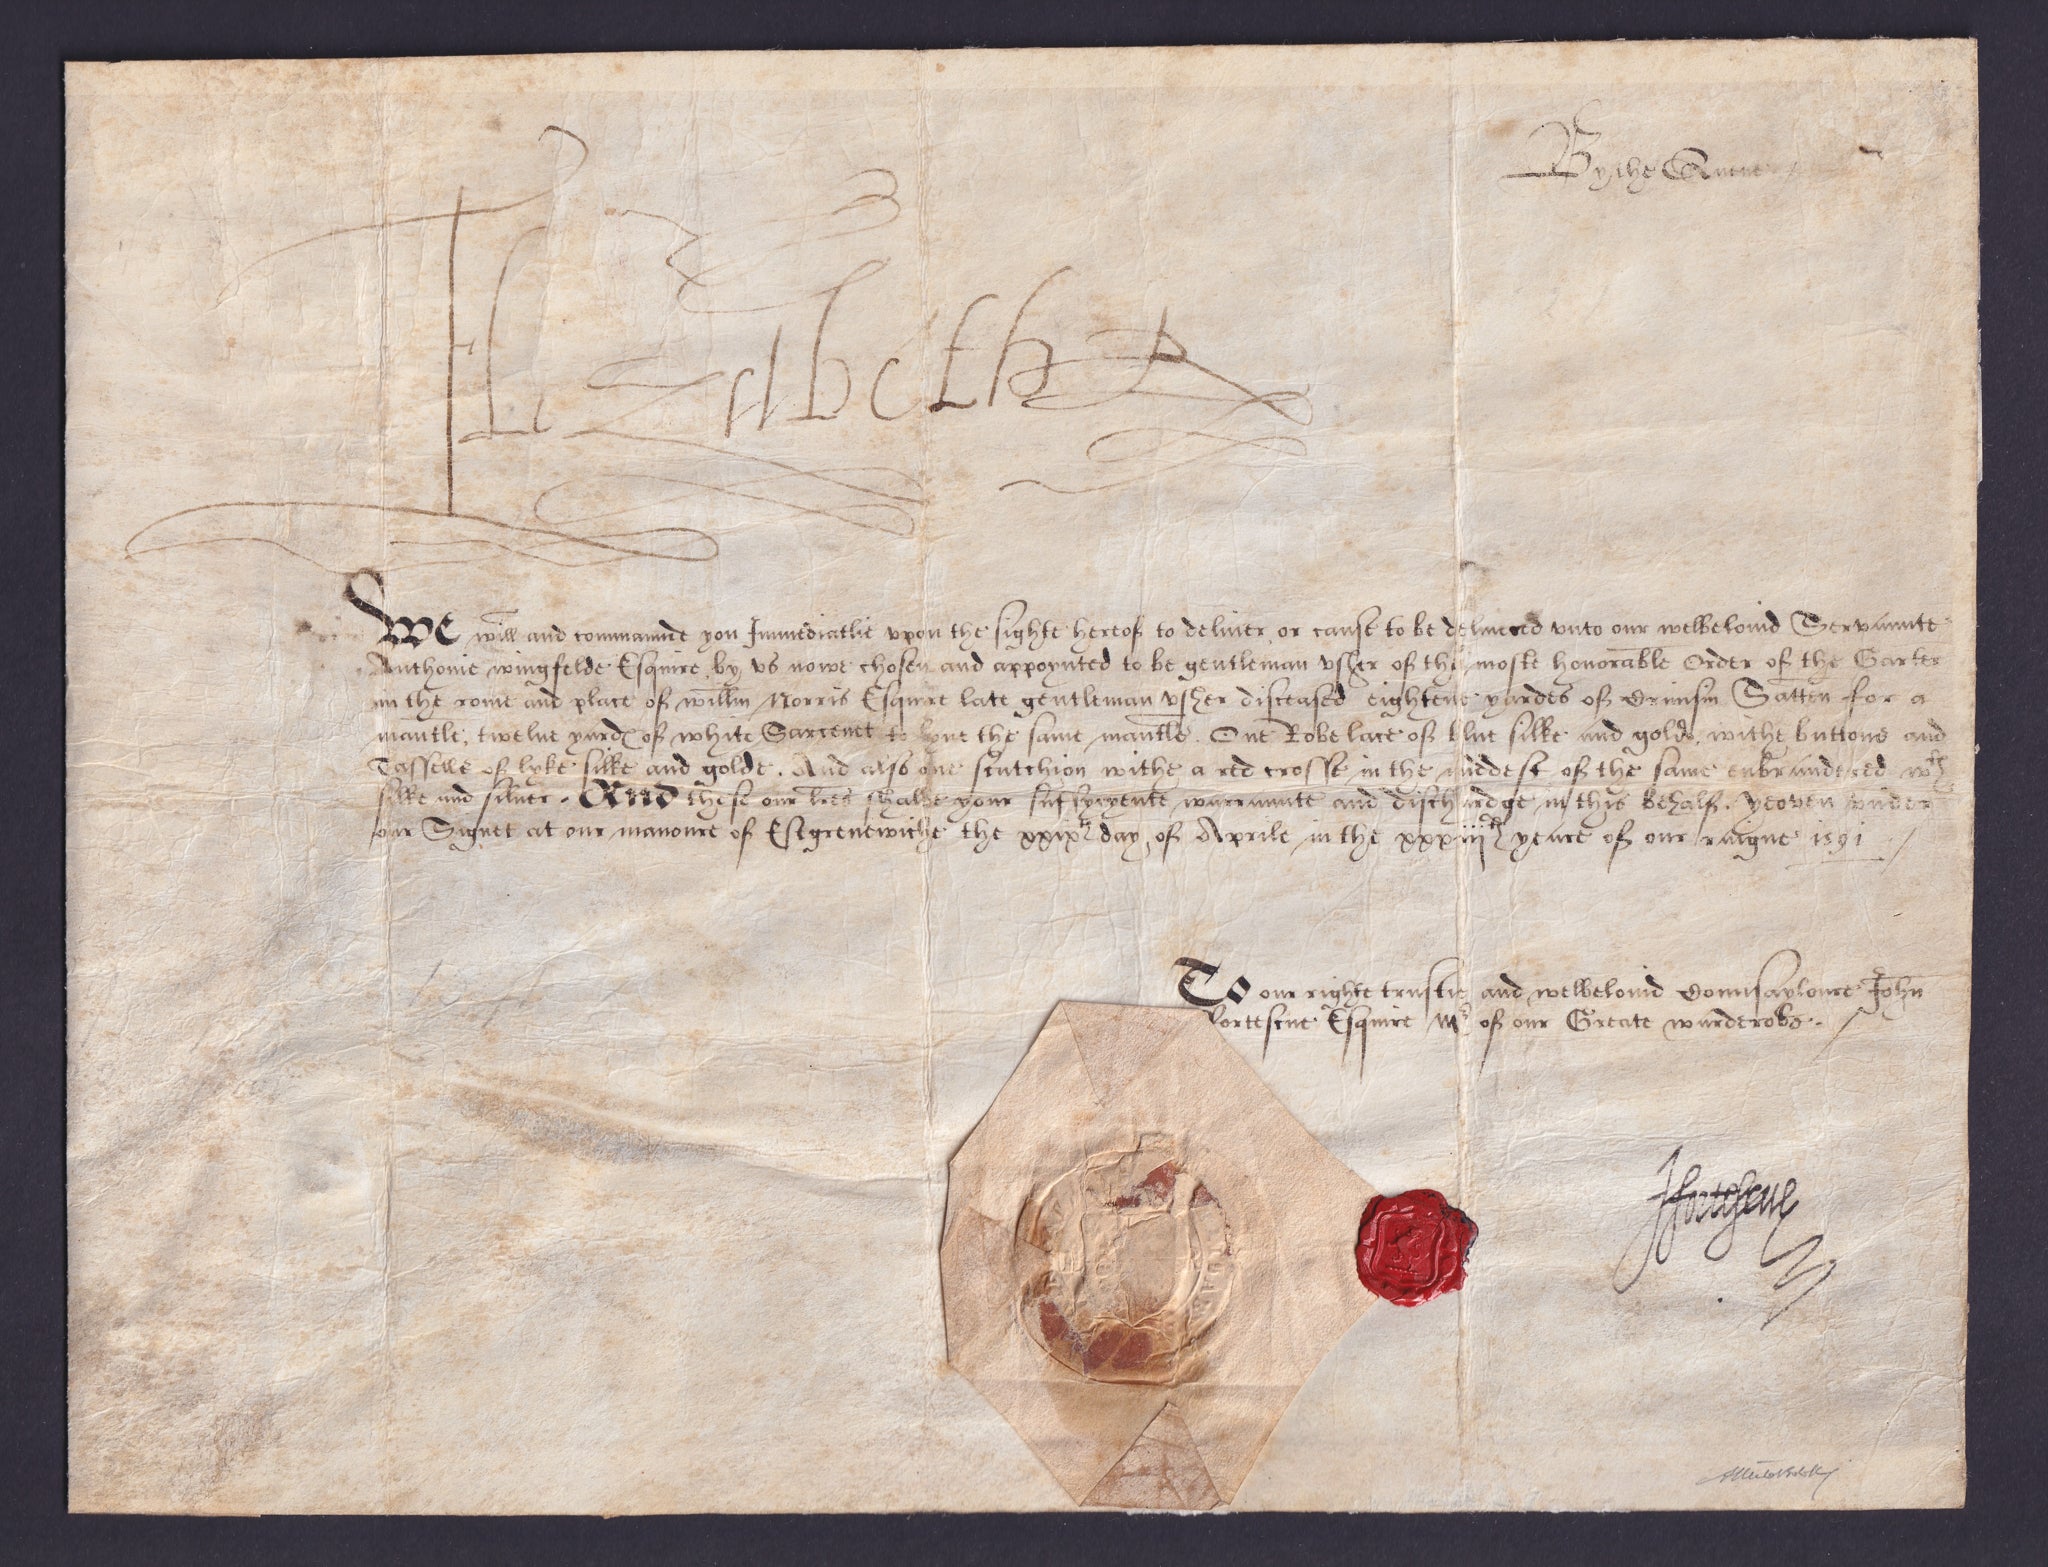 By the Quene
Elizabeth R
We will and commaunde you Immediatlie upon the sighte hereof to deliver or cause to be delivered unto our welbelovid Servaunte
Anthonie wingfelde Esquire by us nowe chosen and appoynted to be gentleman ussher of the moste honorable Order of the Garter
in the rome and place of willm Norris Esquire late gentleman ussher disceased eightene yardes of Crimsin Satten for a
mantle, twelve yardes of white Sarcenet to lyne the same mantle. One Robe lace of blue silke and golde withe buttons and
Tasselles of lyke silke and golde. And also one scutchion withe a red crosse in the middest of the same enbraudered wth
silke and silver. And these our lres shalbe your suffycyente warraunte and dischardge in this behalf. Yeoven under
our Signet at our manoure of Estgrenewiche the xxixth day of Aprile in the xxxiijth yeare of our raigne 1591
To our righte trustie and welbelovid Counsayloure John
Fortescue Esquire Mr of our Greate warderobe.
JFortescue